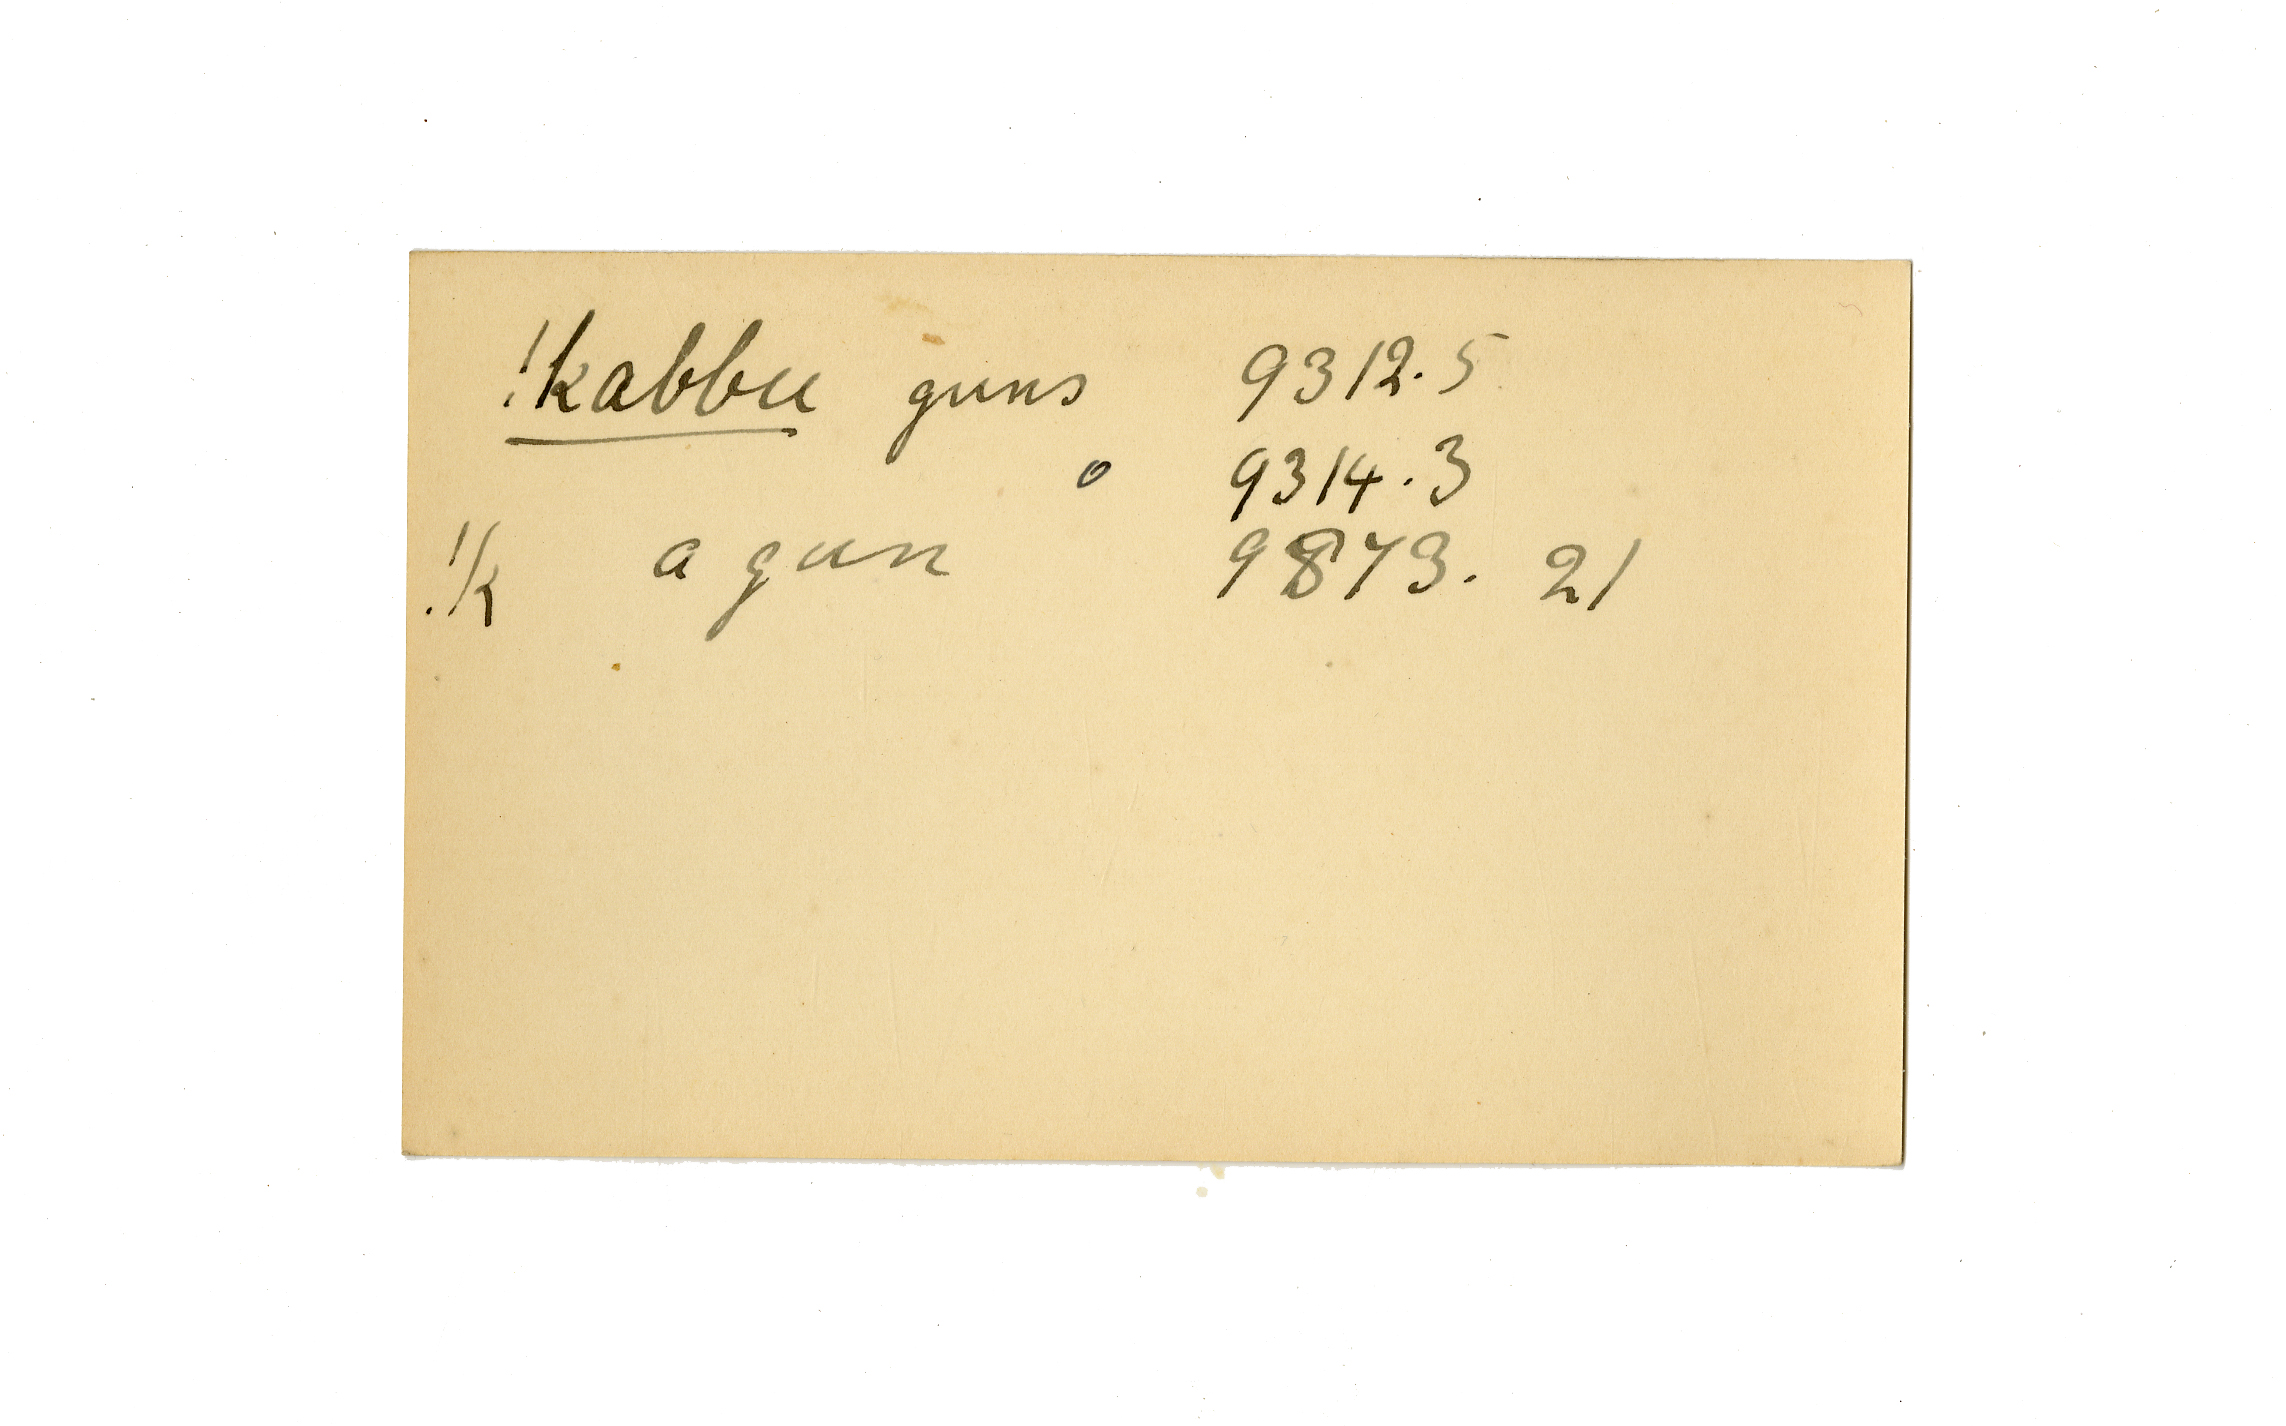 !kabbu guns 9312.5
o 9314.3
!k a gun 9873. 21